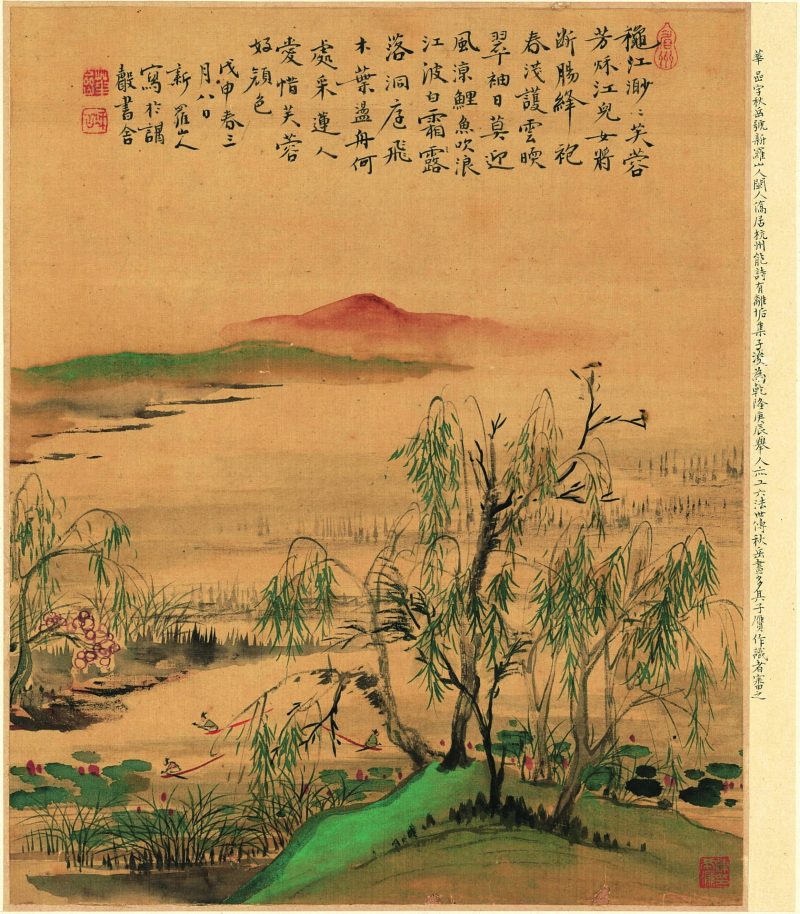 穐江渺〻芙蓉
芳秌江兒女將
断腸絳袍
春淺護雲暖
翠袖日莫迎
風涼鯉魚吹浪
江波白霜露
落洞庭飛
木葉盪舟何
處采蓮人
愛惜芙蓉
好顏色
戊申春三
月八日
新羅山人
寫於
書舍
華嵒字秋岳號新羅山人閩人僑居杭州能詩有離垢集子浚為乾隆庚辰舉人亦工六法世傳秋岳畫多其子贋作識者審之